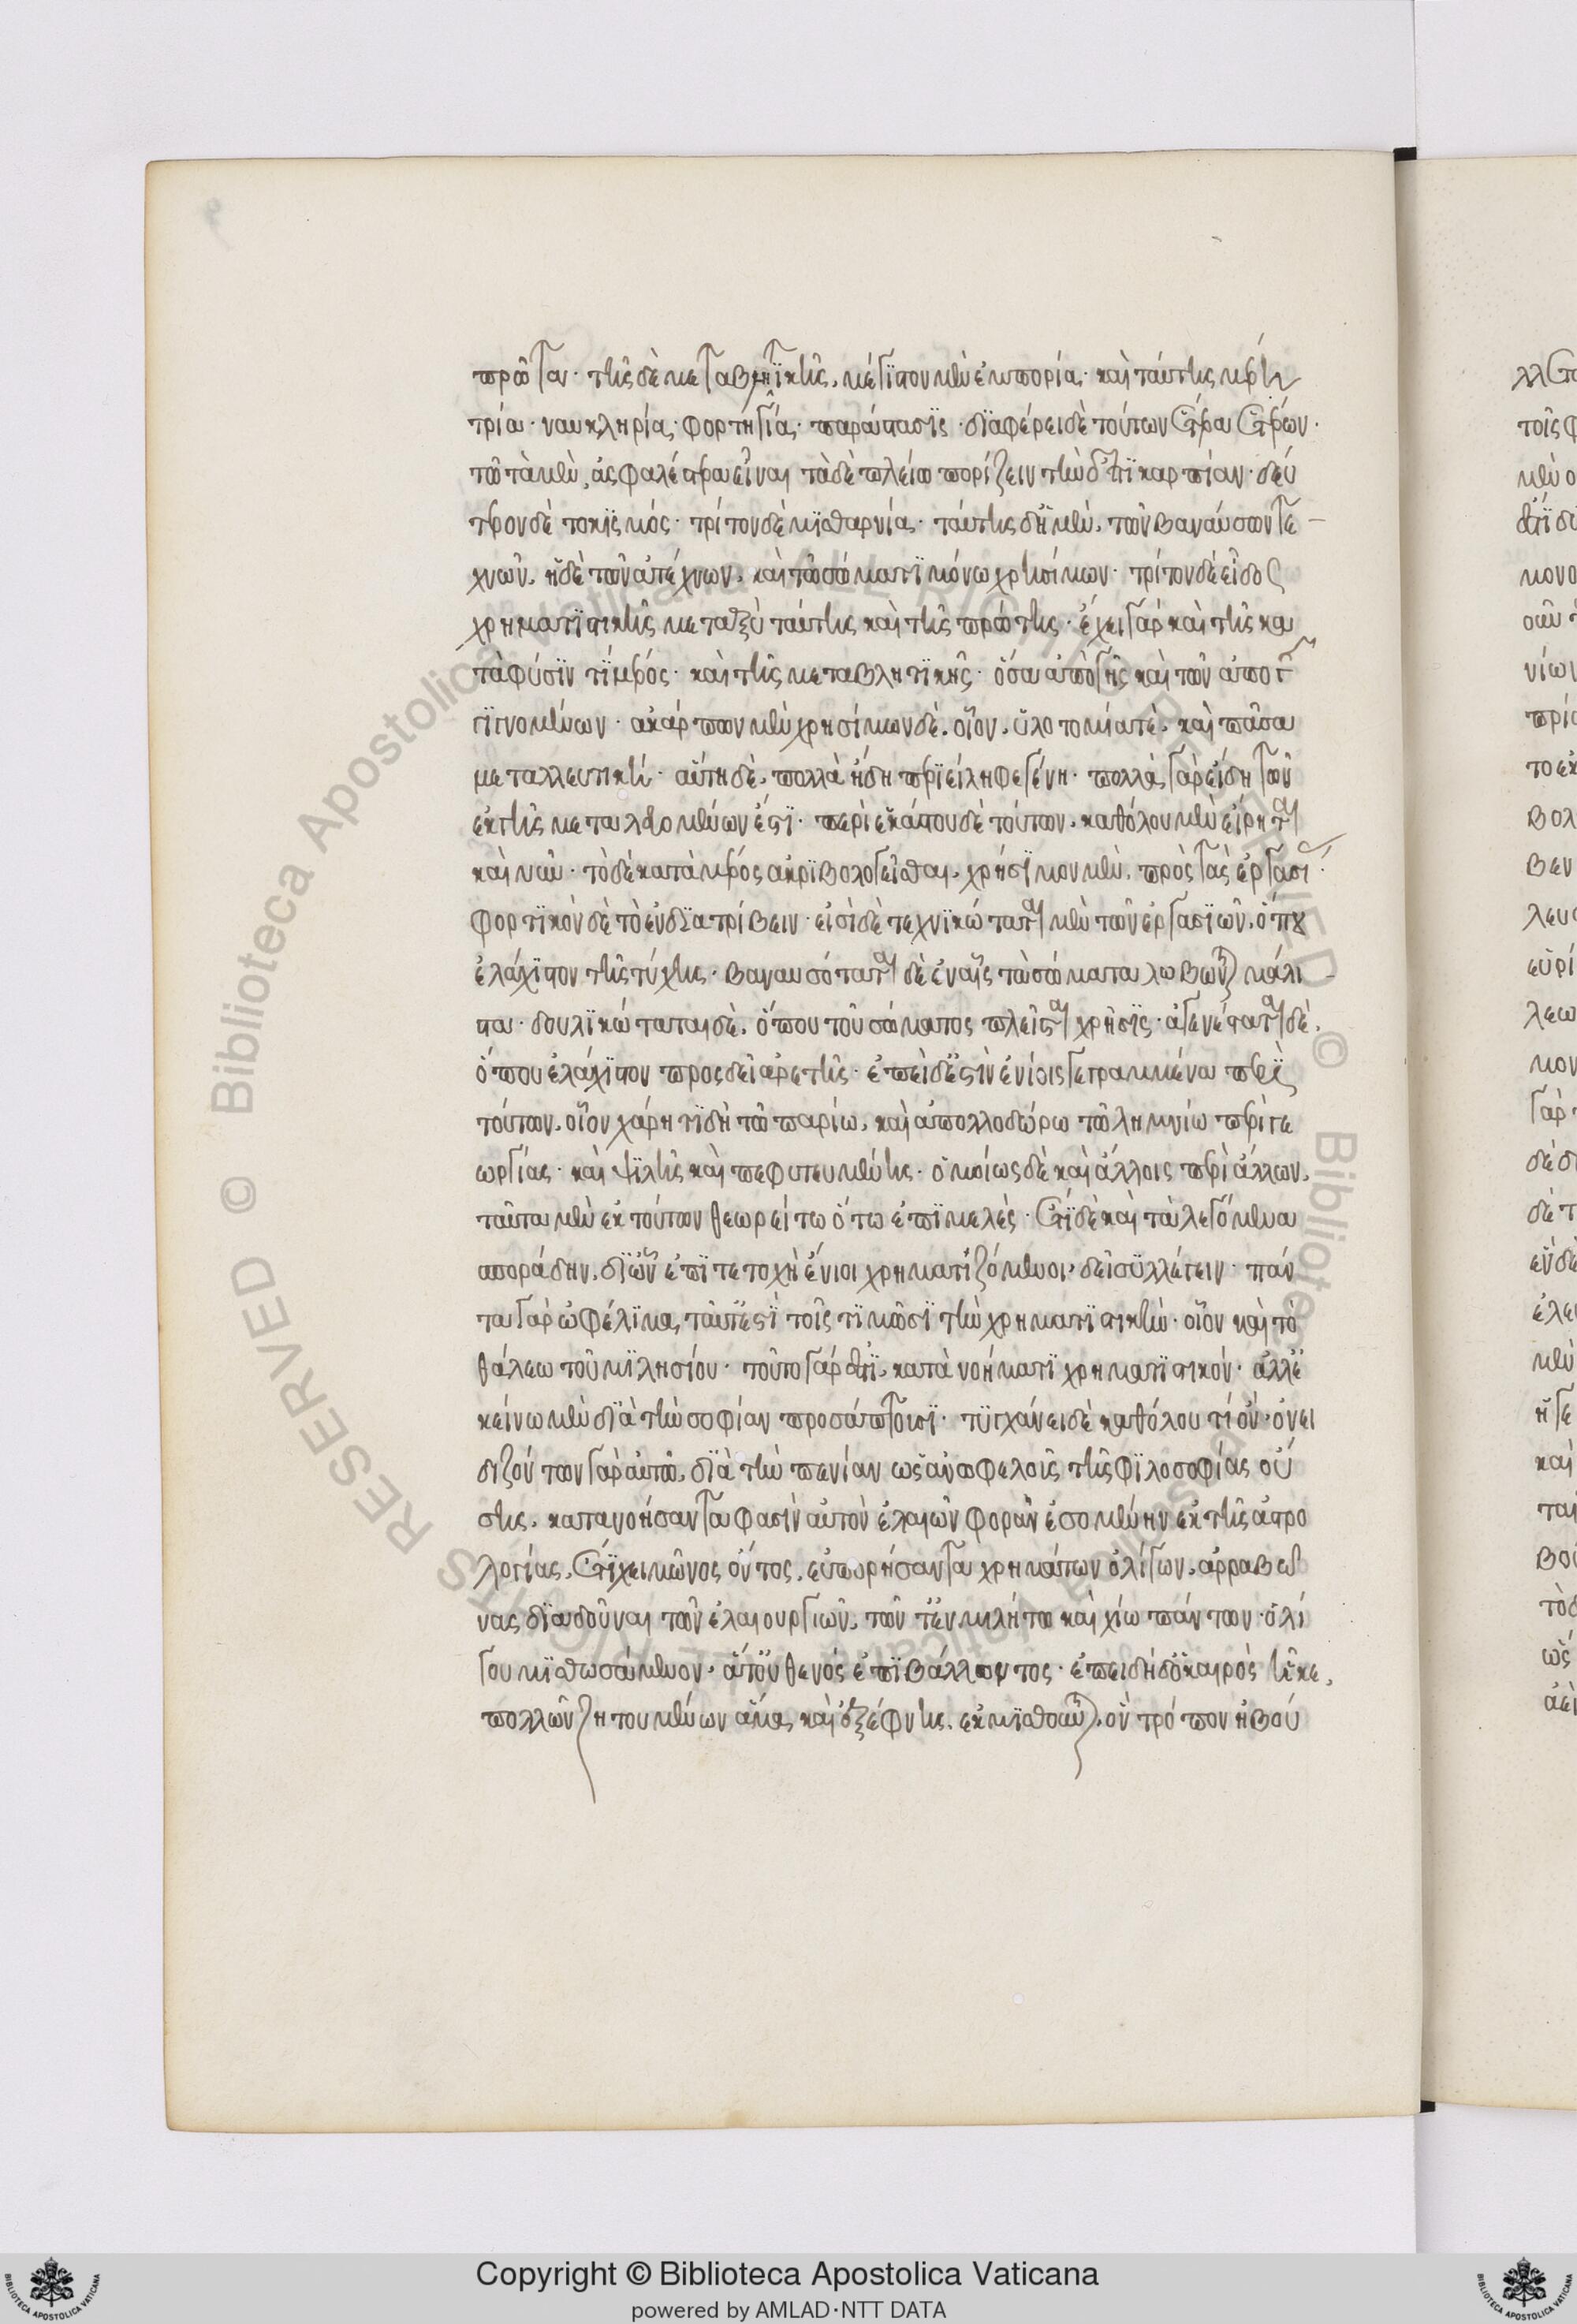 πρώταν· τῆς δὲ μεταβλητϊκῆς, μέγιστον μὲν ἐμπορία· καὶ ταύτης μέρη
τρία· ναυκληρία· φορτηγία· παράστασϊς· διαφέρει δὲ τούτων ἕτερα ἑτέρων·
τῶ τὰ μὲν, ἀσφαλέστερα εἶναι τὰ δὲ πλείω πορίζειν τὴν ἐπικαρπίαν· δεύ
τερον δὲ τοκισμός· τρίτον δὲ μισθαρνία· ταύτης δ' ἡ μὲν, τῶν βαναύσων τε
χνῶν, ἡ δὲ τῶν ἀτέχνων, καὶ τῶ σώματι μόνω χρησίμων· τρίτον δὲ εἶδος
χρηματιστικῆς μεταξὺ ταύτης καὶ τῆς πρώτης· ἔχει γὰρ καὶ τῆς κα
τὰ φύσϊν τϊ μέρος· καὶ τῆς μεταβλητϊκῆς· ὅσα ἀπὸ γῆς καὶ τῶν ἀπὸ γῆς
γϊγνομένων· ἀκάρπων μὲν χρησίμων δὲ, οἷον, ὑλοτομία τὲ, καὶ πᾶσα
μεταλλευτική· αὕτη δὲ, πολλὰ ἤδη περϊείληφε γένη· πολλὰ γὰρ εἴδη τῶν
ἐκ τῆς μεταλλευομένων ἐστϊ· περὶ ἑκάστου δὲ τούτων, καθόλου μὲν εἴρηται
καὶ νῦν· τὸ δὲ κατὰ μέρος ἀκρϊβολογεῖσθαι, χρήσϊμον μὲν, πρὸς τὰς ἐργασί
φορτϊκὸν δὲ τὸ ἐνδϊατρίβειν· εἰσὶ δὲ τεχνϊκώταται μὲν τῶν ἐργασϊῶν, ὅπου
ἐλάχϊστον τῆς τύχης· βαναυσόταται δὲ ἐν αἷς τὰ σώματα λωβῶνται μάλι
στα· δουλϊκώταται δὲ, ὅπου τοῦ σώματος πλεῖσται χρήσϊς· ἀγενέσταται δὲ,
ὅπου ἐλάχϊστον προσδεῖ ἀρετῆς· ἐπεὶ δ' ἐστὶν ἐνίοις γεγραμμένα περὶ
τούτων, οἷον χάρητϊ δὴ τῶ παρίω, καὶ ἀπολλοδώρω τῶ λημνίω περὶ γε
ωργίας· καὶ ψϊλῆς καὶ πεφυτευμένης· ὁμοίως δὲ καὶ ἄλλοις περὶ ἄλλων,
ταῦτα μὲν ἐκ τούτων θεωρείτω ὅτω ἐπϊμελές· ἔτϊ δὲ καὶ τὰ λεγόμενα
σποράδην, δϊ' ὧν ἐπϊτετυχὴ ἔνιοι χρηματιζόμενοι, δεῖ συλλέγειν· πάν
τα γὰρ ὠφέλϊμα, ταῦτ' ἐστϊ τοῖς τϊμῶσϊ τὴν χρηματϊστικήν· οἷον καὶ τὸ
θάλεω τοῦ μϊλησίου· τοῦτο γάρ ἐστϊ, κατὰ νοήματϊ χρηματϊστικόν· ἀλλ' ἐ
κείνω μὲν δϊὰ τὴν σοφίαν προσάπτουσϊ· τϋγχάνει δὲ καθόλου τϊ ὄν· ὀνει
διζόντων γὰρ αὐτῶ, δϊὰ τὴν πενίαν ὡς ἀνωφελοῖς τῆς φϊλοσοφίας οὔ
σης, κατανοήσαντα φασὶν αὐτὸν ἐλαιῶν φορὰν ἐσομένην ἐκ τῆς ἀστρο
λογίας, ἔτϊ χειμῶνος ὄντος, εὐπορήσαντα χρημάτων ὀλίγων, ἀρραβῶ
νας δϊαδοῦναι τῶν ἐλαιουργιῶν, τῶν τ' ἐν μιλήτω καὶ χίω πάντων· ὀλί
γου μϊσθωσάμενον, ἅτ' οὐθενὸς ἐπϊβάλλοντος· ἐπειδὴ δ' ὁ καιρὸς ἧκε,
πολλῶν ζητουμένων ἅμα, καὶ ἐξέφνης, ἐκμϊσθοῦν, ὃν τρόπον ἠβού